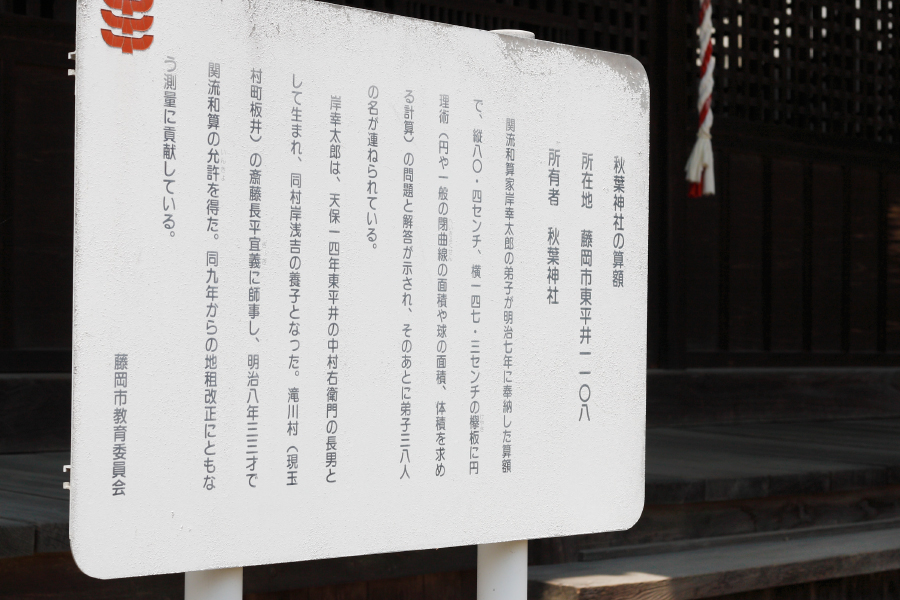 秋葉神社の算額
所在地　藤岡市東平井一一〇八
所有者　秋葉神社
関流和算家岸幸太郎の弟子が明治七年に奉納した算額
で、縦八〇・四センチ、横一四七・三センチの欅板に円
理術（円や一般の閉曲線の面積や球の面積、体積を求め
る計算）の問題と解答が示され、そのあとに弟子三八人
の名が連ねられている。
岸幸太郎は、天保一四年東平井の中村右衛門の長男と
して生まれ、同村岸浅吉の養子となった。滝川村（現玉
村町板井）の斎藤長平宜義に師事し、明治八年三三才で
関流和算の允許を得た。同九年からの地租改正にともな
う測量に貢献している。
藤岡市教育委員会